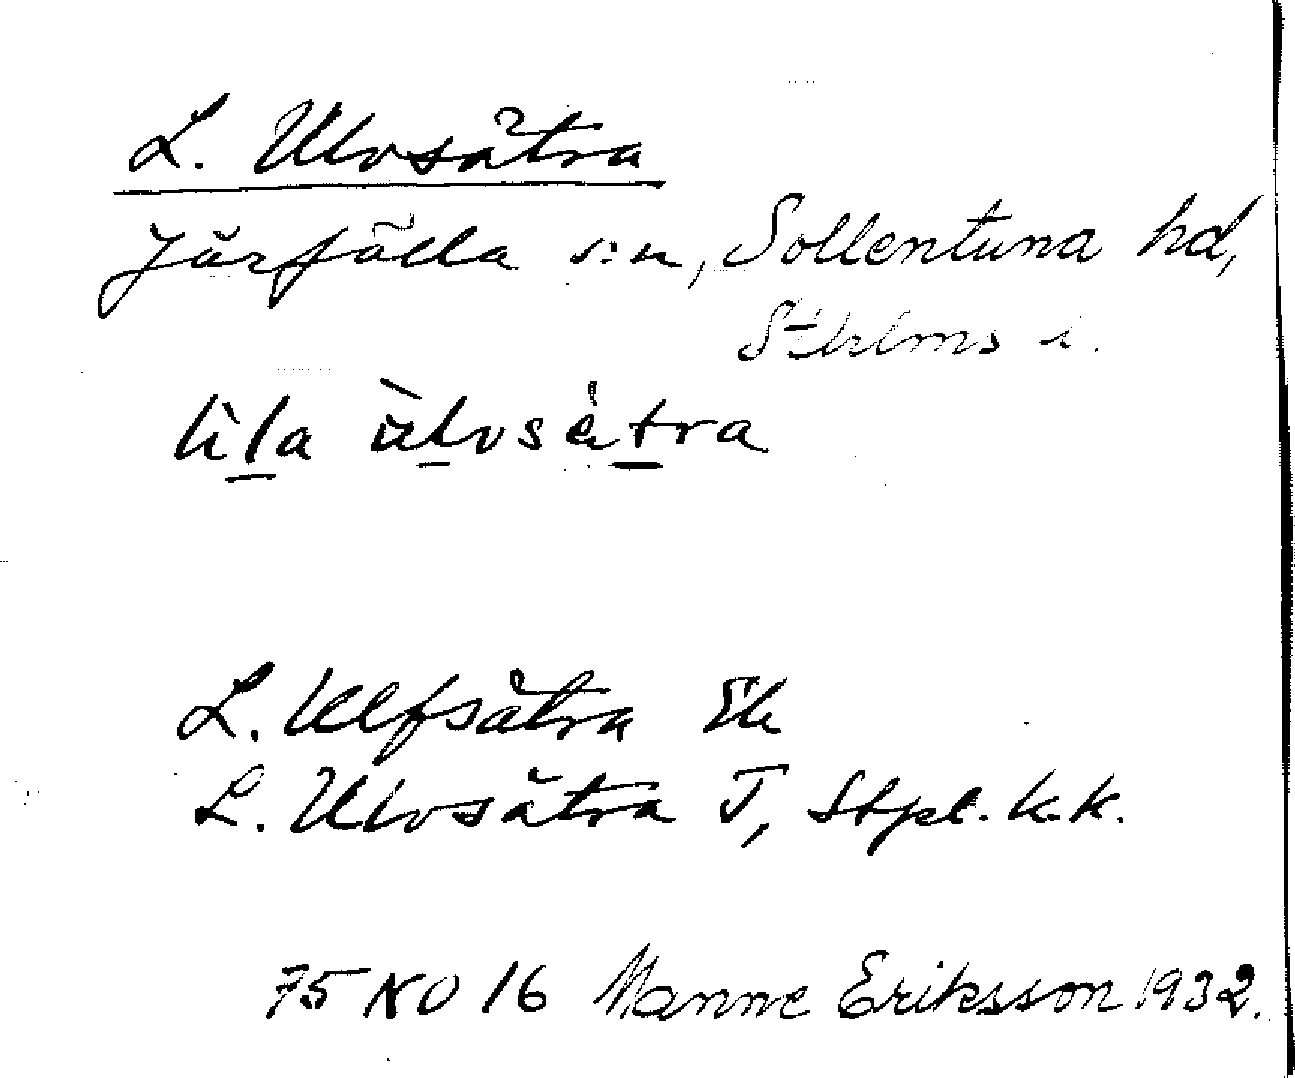 L. Ulvsätra
Järfälla s:n, Sollentuna hd,
Sthlms l.
lìla ùlvsètra
L. Ulfsätra Ek
L. Ulvsätra T, Stpl. k.k.
75 NO 16 Manne Eriksson 1932.